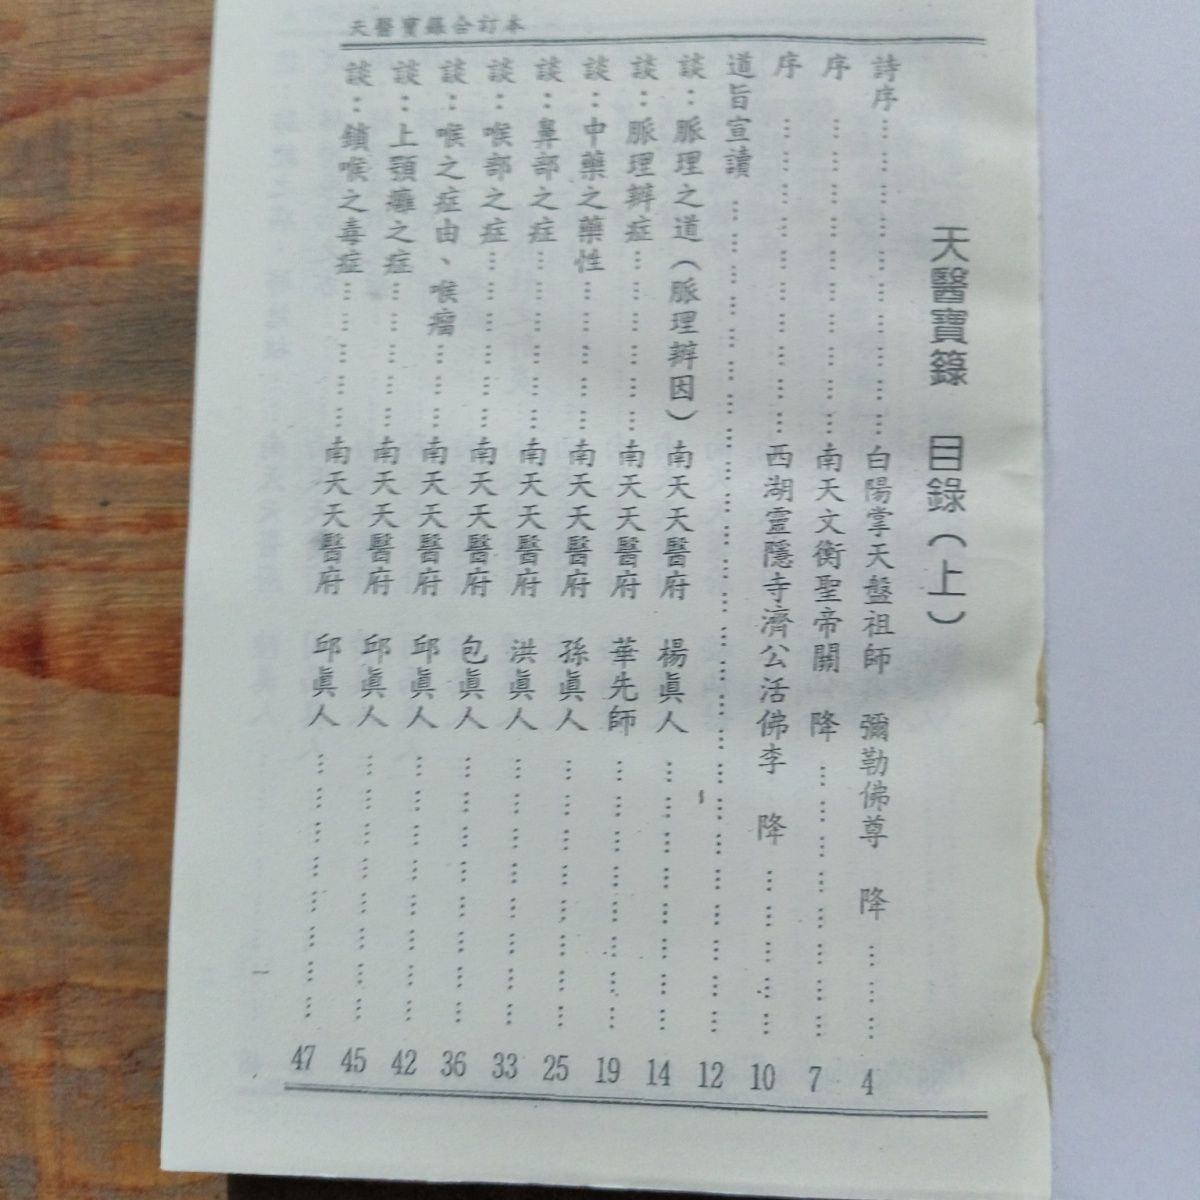 天醫寶籙合訂本
天醫寶籙 目錄（上）
詩序……………………………白陽掌天盤祖師 彌勒佛尊 降…………4
序……………………………南天文衡聖帝關 降……………………7
序……………………………西湖靈隱寺濟公活佛李 降………………10
道旨宣讀………………………………………………………………12
談：脈理之道（脈理辯因）南天天醫府 楊眞人……………………14
談：脈理辯症………………南天天醫府 華先師……………………19
談：中藥之藥性……………南天天醫府 孫眞人……………………25
談：鼻部之症………………南天天醫府 洪眞人……………………33
談：喉部之症………………南天天醫府 包眞人……………………36
談：喉之症由、喉瘤………南天天醫府 邱眞人……………………42
談：上顎癰之症……………南天天醫府 邱眞人……………………45
談：鎖喉之毒症……………南天天醫府 邱眞人……………………47
一